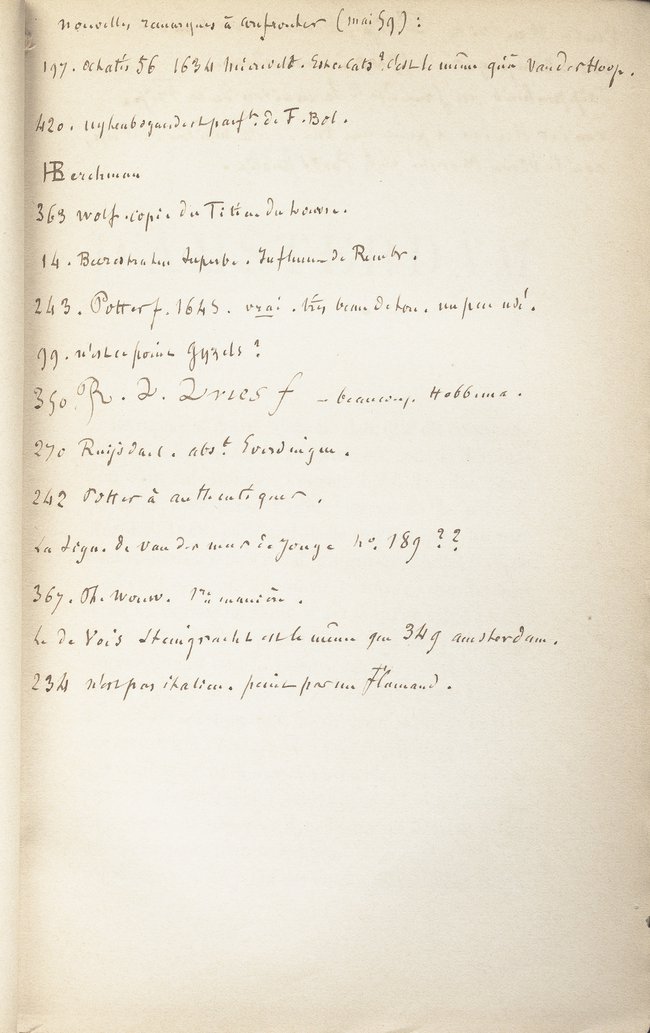 nouvelles remarques à confronter (mai 59) :
197. acheté 56 1634 Miereveld. Est-ce Cats ? c'est le même qu'à Van der Hoop.
420. uytenbogaerdest parft. de F. Bol.
HBerckman
363 Wolf. copie du Titien du Louvre.
14. Beerestraten superbe. Influence de Rembr.
243. Potter f. 1645. vrai. très beau de ton. un peu usé.
99. n'est ce point Gyzels ?
350 R. V. Vries f – beaucoup Hobbema.
270 Ruijsdael. abst. Everdingen.
242 Potter à authentiquer.
La sign. de van der meer de Jonge no. 189 ??
367. Ph. Wouw. 1re manière.
Le de Vois Steingracht est le même que 349 amsterdam.
234 n'est pas italien. peint par un Flamand.